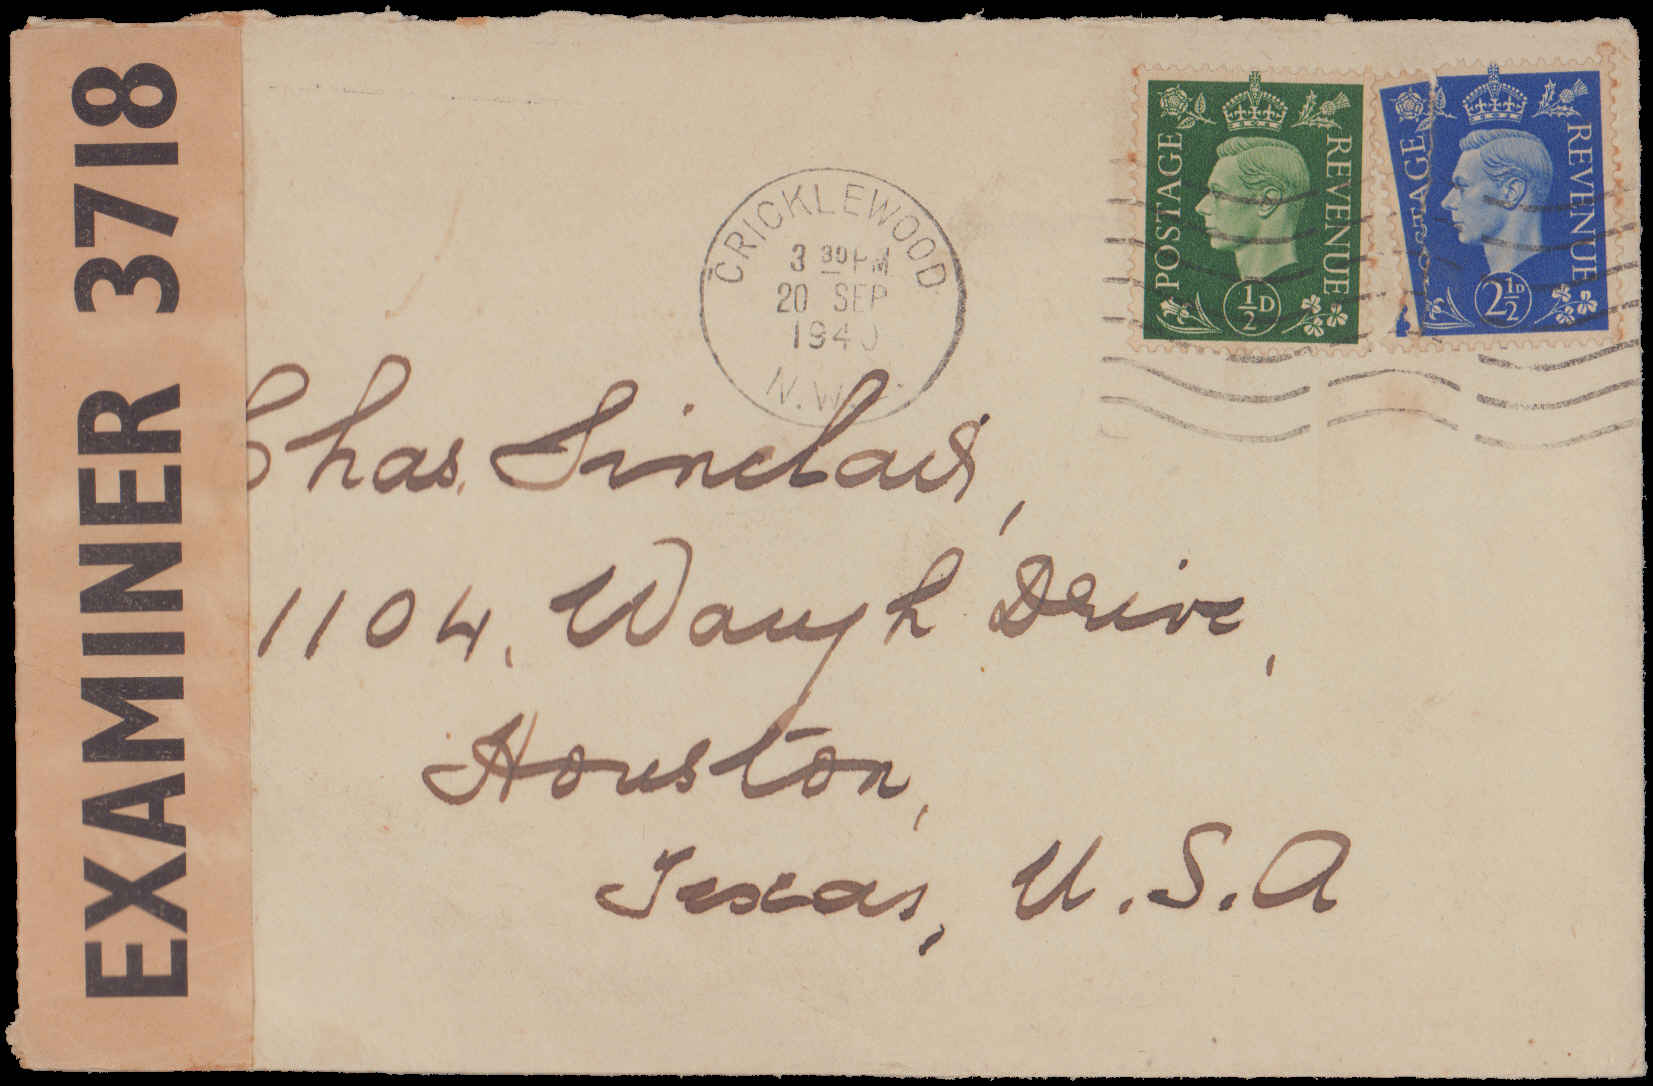 EXAMINER 3718
CRICKLEWOOD
3 30 PM
20 SEP
1940
N.W.
POSTAGE
REVENUE
½D
POSTAGE
REVENUE
2½D
Chas. Sinclair,
1104, Waugh Drive,
Houston,
Texas, U.S.A